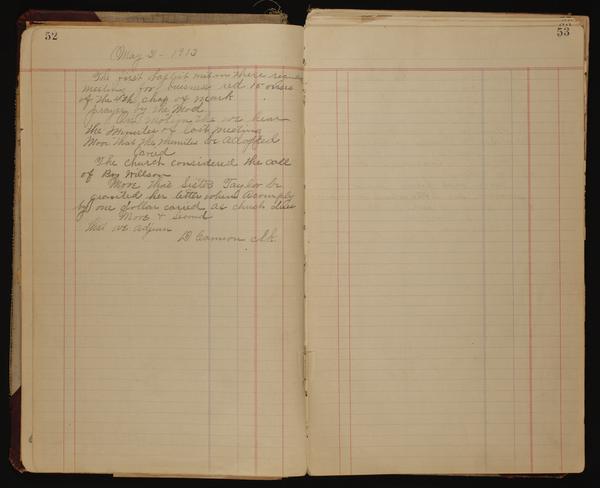 52
May 3 - 1913
The first Baptist met in there regular
meeting for business red 10 verses
of the 4th chap of mark
prayer by the Mod
on motion the we hear
the Minutes of last meeting
Move that the Minutes be adopted
caried
The church considered the call
of Roy Willson
Move that Sister Taylor be
granited her letter when acomply
by one dollar carred as church dues
Move & second
that we adjurn
D Cannon clk
53